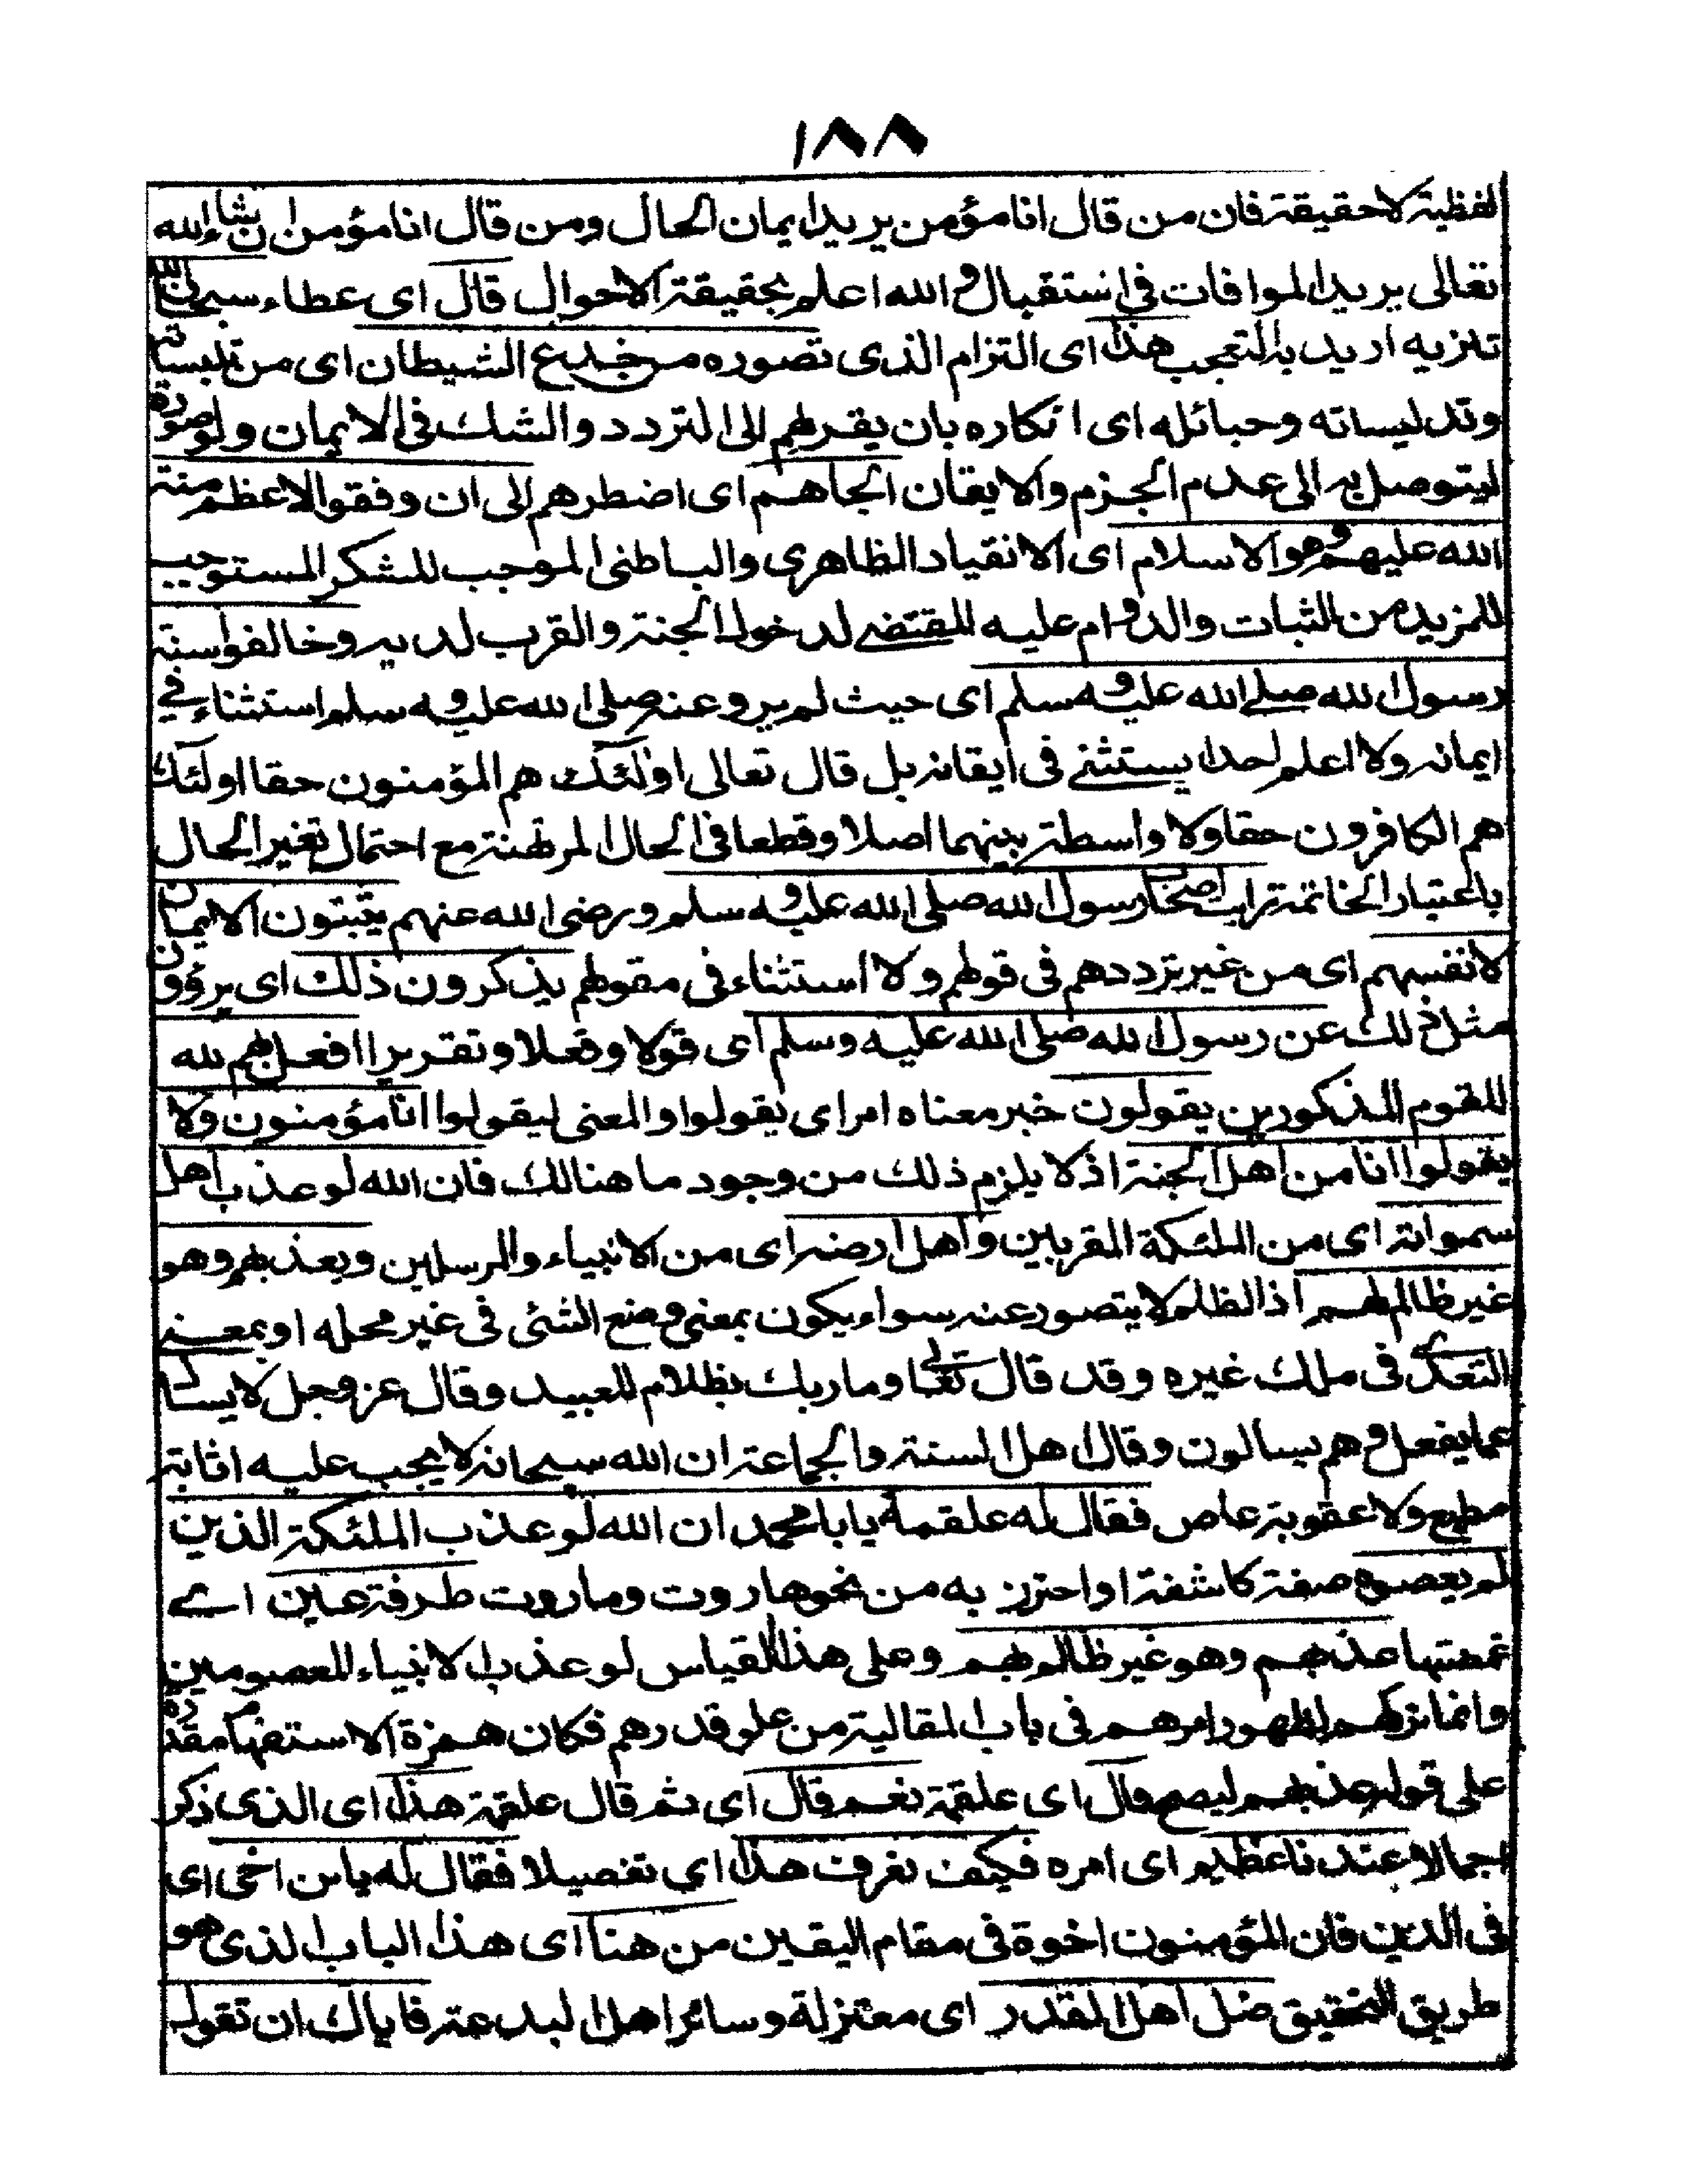 ١٨٨
لفظية لا حقيقة فان من قال انا مؤمن يريد ايمان الحال ومن قال انا مؤمن ان شاء الله
تعالى يريد الموافات فى استقبال والله اعلم بحقيقة الاحوال قال اى عطاء سبحان الله
تنزيه اريد به التعجب هذا اى التزام الذى تصوره من خدع الشيطان اى من تلبيساته
وتدليساته وحبائله اى انكاره بان يقربهم الى التردد والشك فى الايمان ولو صورة
ليتوصل به الى عدم الجزم والايقان الجاهم اى اضطرهم الى ان وفقوا لاعظم منة
الله عليهم وهو الاسلام اى الانقياد الظاهرى والباطنى الموجب للشكر المستوجب
للمزيد من الثبات والدوام عليه المقتضى لدخول الجنة والقرب لديه وخالفوا سنة
رسول الله صلى الله عليه وسلم اى حيث لم يرو عنه صلى الله عليه وسلم استثناء فى
ايمانه ولا اعلم احدا يستثنى فى ايقانه بل قال تعالى اولئك هم المؤمنون حقا اولئك
هم الكافرون حقا ولا واسطة بينهما اصلا وقطعا فى الحال المرتهنة مع احتمال تغير الحال
باعتبار الخاتمة رايت اصحاب رسول الله صلى الله عليه وسلم ورضى الله عنهم يثبتون الايمان
لانفسهم اى من غير ترددهم فى قولهم ولا استثناء فى مقولهم يذكرون ذلك اى يرؤون
مثل ذلك عن رسول الله صلى الله عليه وسلم اى قولا وفعلا وتقريرا افعل لهم لله
للقوم المذكورين يقولون خبر معناه امر اى يقولوا والمعنى ليقولوا انا مؤمنون ولا
يقولوا انا من اهل الجنة اذ لا يلزم ذلك من وجود ما هنالك فان الله لو عذب اهل
سمواته اى من الملئكة المقربين واهل ارضه اى من الانبياء والمرسلين ويعذبهم وهو
غير ظالم لهم اذ الظلم لا يتصور عنه سواء يكون بمعنى وضع الشئى فى غير محله او بمعنى
التعدى فى ملك غيره وقد قال تعالى وما ربك بظلام للعبيد وقال عز وجل لا يسال
عما يفعل وهم يسالون وقال اهل السنة والجماعة ان الله سبحانه لا يجب عليه اثابة
مطيع ولا عقوبة عاص فقال له علقمة يابا محمد ان الله لو عذب الملئكة الذين
لم يعصوه صفة كاشفة او احترز به من نحو هاروت وماروت طرفة عين اى
غمضتها عذبهم وهو غير ظالم لهم وعلى هذا القياس لو عذب الانبياء المعصومين
وانما تركهم لظهور امرهم فى باب المقالية من علو قدرهم فكان همزة الاستفهام مقدرة
على قوله عذبهم ليصح قال اى علقمة نعم قال اى ثم قال علقمة هذا اى الذى ذكر
اجمالا عندنا عظيم اى امره فكيف نعرف هذا اى تفصيلا فقال له يا بن اخى اى
فى الدين فان المؤمنون اخوة فى مقام اليقين من هنا اى هذا الباب الذى هو
طريق التحقيق ضل اهل القدر اى معتزلة وسائر اهل البدعة فاياك ان تقول